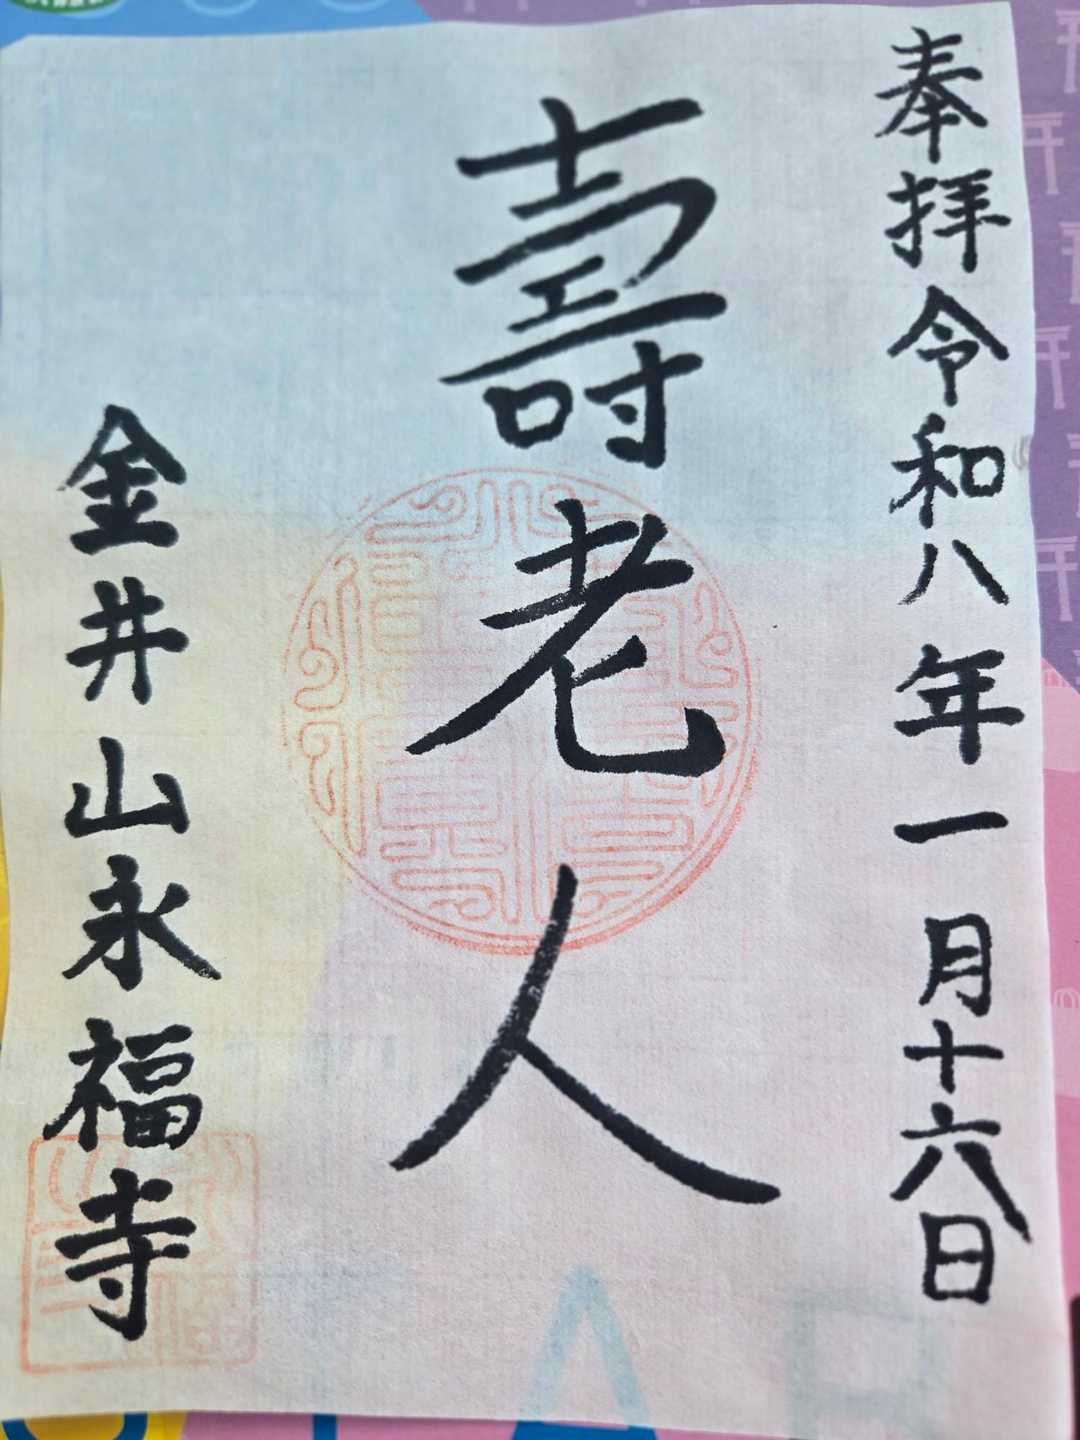 奉拝令和八年一月十六日
壽老人
金井山永福寺